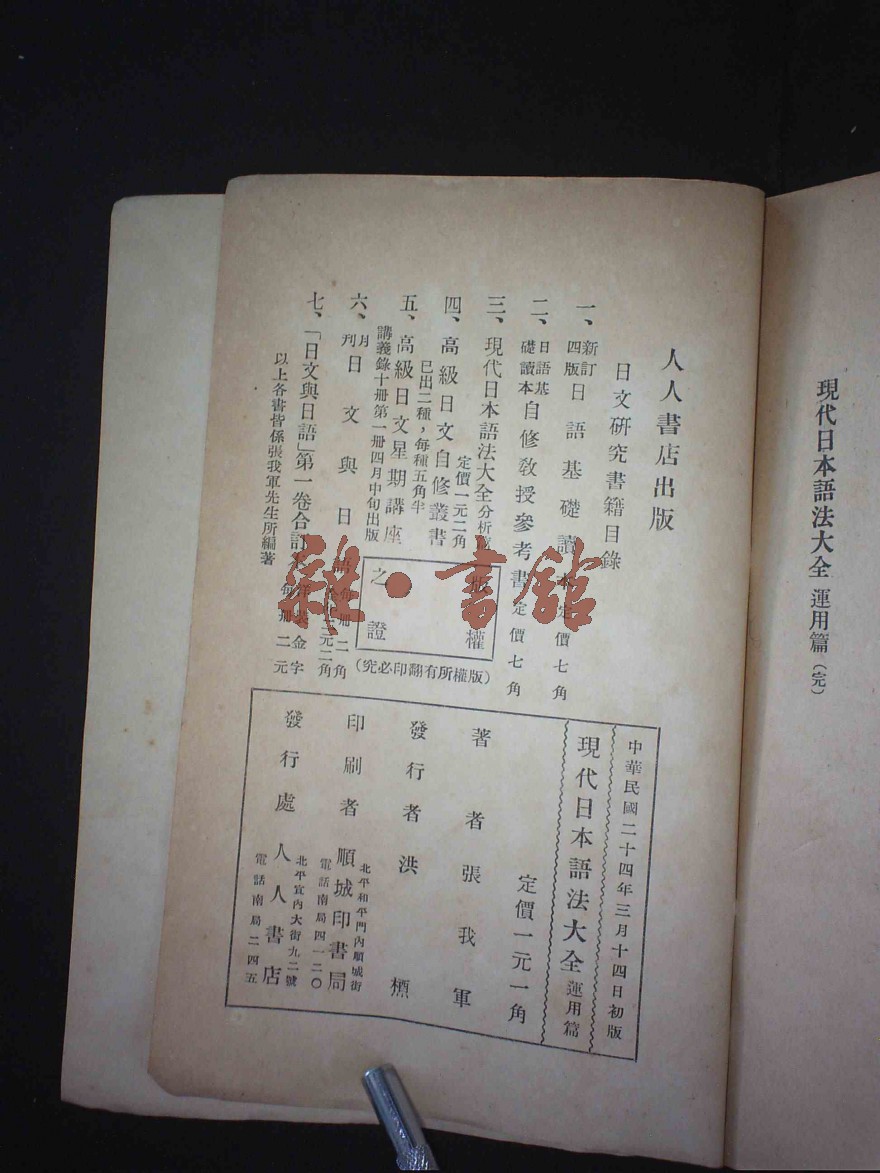 現代日本語法大全 運用篇（完）
人人書店出版
日文研究書籍目錄
一、新訂四版日語基礎讀本定價七角
二、日語基礎讀本自修教授參考書定價七角
三、現代日本語法大全分析
定價一元二角
四、高級日文自修叢書
已出二種，每種五角半
五、高級日文星期講座
講義錄十冊第一冊四月中旬出版
六、月刊日文與日語每冊二角
元二角
七、「日文與日語」第一卷合訂本
金字
每冊二元
以上各書皆係張我軍先生所編著
版權
之證
(版權所有翻印必究)
中華民國二十四年三月十四日初版
現代日本語法大全運用篇
定價一元一角
著者張我軍
發行者洪
印刷者順城印書局
北平和平門內順城街
電話南局四一二〇
發行處人人書店
北平宣內大街九二號
電話南局二四五
雜·書館